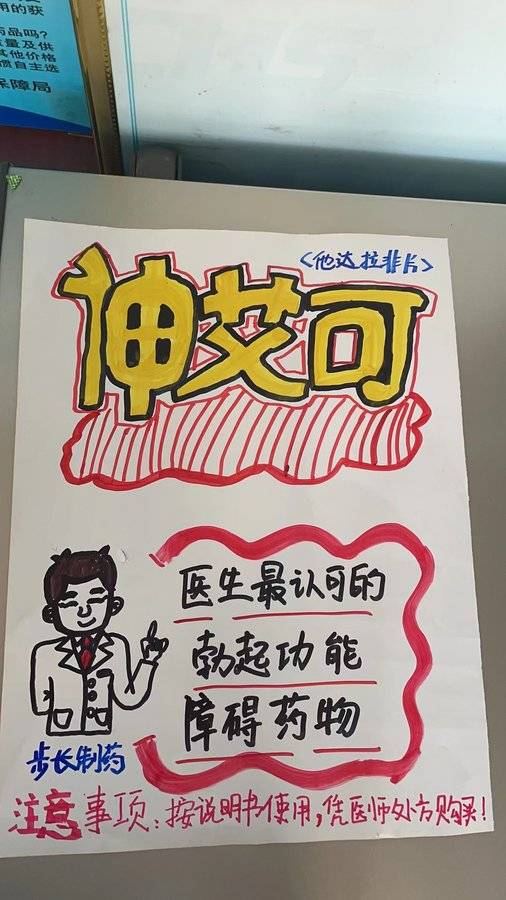 用的获
药品吗?
量及供
其他价格
愿自主选
保障局
<他达拉非片>
伸艾可
医生最认可的
勃起功能
障碍药物
步长制药
注意事项:按说明书使用,凭医师处方购买!